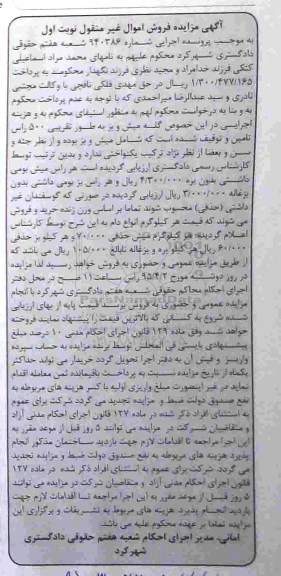 آگهی مزایده فروش اموال غیر منقول نوبت اول
به موجب پرونده اجرایی شماره ۹۴۰۳۸۶ شعبه هفتم حقوقی
دادگستری شهرکرد محکوم علیهم به نامهای محمد مراد اسماعیلی
فرزند خدامراد و مجید نظری فرزند نگهدار محکومند به پرداخت
۱/۳۰۰/۴۷۷/۱۶۵ ریال در حق مهدی فلکی نافچی با وکالت مجتبی
نادری و سید عبدالرضا میراحمدی که با توجه به عدم پرداخت محکوم
به و بنا به درخواست محکوم لهم به منظور استیفای محکوم به و هزینه
اجرایی در این خصوص گله میش و بز به طور تقریبی ۵۰۰ راس
تامین و توقیف شده است که شامل میش و بز بوده و از نظر جثه و
سن و بعضا از نظر نژاد ترکیب یکنواختی ندارد و بدین ترتیب توسط
کارشناس رسمی دادگستری ارزیابی گردیده است هر راس میش بومی
داشتنی بدون بره ۴/۳۰۰/۰۰۰ ریال و هر راس بز بومی داشتی بدون
بزغاله ۳/۰۰۰/۰۰۰ ریال ارزیابی گردیده در صورتی که گوسفندان غیر
داشتی (حذفی) محسوب شوند تماما بر اساس وزن زنده خرید و فروش
می شوند که قیمت هر کیلوگرم انواع دام به این شرح توسط کارشناس
اعلام گردیده: هر کیلوگرم میش حذفی ۷۰/۰۰۰ و هر کیلو بز حذفی
۶۰/۰۰۰ ریال هر کیلو بره و بزغاله نابالغ ۱۰۵/۰۰۰ ریال می باشد که
از طریق مزایده عمومی و حضوری به فروش خواهد رسید لذا مزایده
در روز دوشنبه مورخ ۹۵/۴/۲ راس ساعت ۱۱ صبح در محل دفتر
اجرای احکام محاکم حقوقی شعبه هفتم دادگستری شهرکرد با انجام
مزایده عمومی و حضوری به فروش برسد. قیمت پایه از بهای ارزیابی
شده شروع به کسانی که بالاترین قیمت را پیشنهاد نمایند فروخته
خواهد شد وفق ماده ۱۲۹ قانون اجرای احکام مدنی ۱۰ درصد مبلغ
پیشنهادی بایستی فی المجلس توسط برنده مزایده به حساب سپرده
واریز و فیش آن به دفتر اجرا تحویل گردد خریدار می تواند حداکثر
یکماه از تاریخ مزایده نسبت به پرداخت باقیمانده ثمن معامله اقدام
نماید در غیر اینصورت مبلغ واریزی اولیه با کسر هزینه های مربوطه به
نفع صندوق دولت ضبط و مزایده تجدید می گردد شرکت برای عموم
به استثنای افراد ذکر شده در ماده ۱۲۷ قانون اجرای احکام مدنی آزاد
و متقاضیان شرکت در مزایده می توانند ۵ روز قبل از موعد مقرر به
این اجرا مراجعه تا اقدامات لازم جهت بازدید ساختمان مذکور انجام
پذیرد هزینه های مربوطه به نفع صندوق دولت ضبط و مزایده تجدید
می گردد. شرکت برای عموم به استثنای افراد ذکر شده در ماده ۱۲۷
قانون اجرای احکام مدنی آزاد و متقاضیان شرکت در مزایده می توانند
۵ روز قبل از موعد مقرر به این اجرا مراجعه تا اقدامات لازم جهت
بازدید انجام پذیرد هزینه های مربوط به تشریفات و برگزاری این
مزایده تماما بر عهده محکوم علیه می باشد.
امانی. مدیر اجرای احکام شعبه هفتم حقوقی دادگستری
شهرکرد